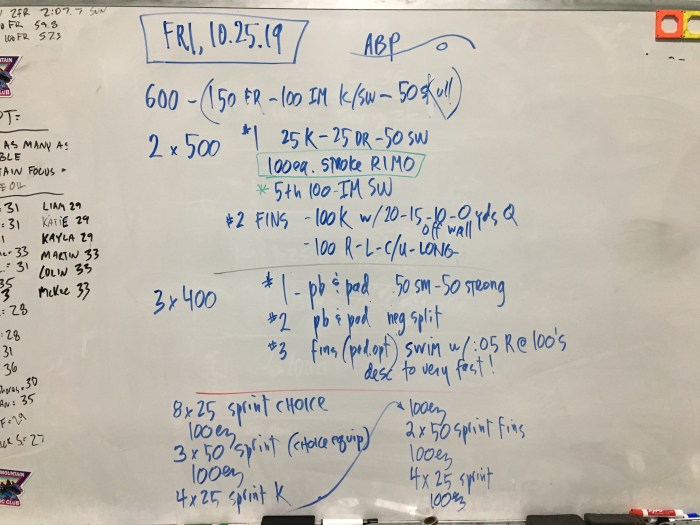 FRI, 10.25.19
ABP
600 - (150 FR - 100 IM K/SW - 50 skull)
2 x 500 #1 25 K - 25 DR - 50 SW
100 ea. stroke RIMO
* 5th 100 - IM SW
#2 FINS - 100 K w/ 20-15-10-0 yds Q
off wall
- 100 R-L-C/U-LONG
3 x 400 #1 - pb & pad 50 sm - 50 strong
#2 pb & pad neg split
#3 fins (pad. opt) swim w/ :05 R @ 100's
desc to very fast!
8 x 25 sprint CHOICE
100 ez
3 x 50 sprint (choice equip)
100 ez
4 x 25 sprint K
100 ez
2 x 50 sprint fins
100 ez
4 x 25 sprint
100 ez
2 FR 2:07.
FR 59.8
100 FR 57.5
AS MANY AS
BLE
TAIN FOCUS
= 31 LIAM 29
= 31 KATIE 29
KAYLA 29
33 MARTIN 33
= 31 COLIN 33
35
3 McKee 33
= 28
= 28
31
36
= 30
= 35
= 29
S = 27
MOUNTAIN
CLUB
MOUNTAIN
CLUB